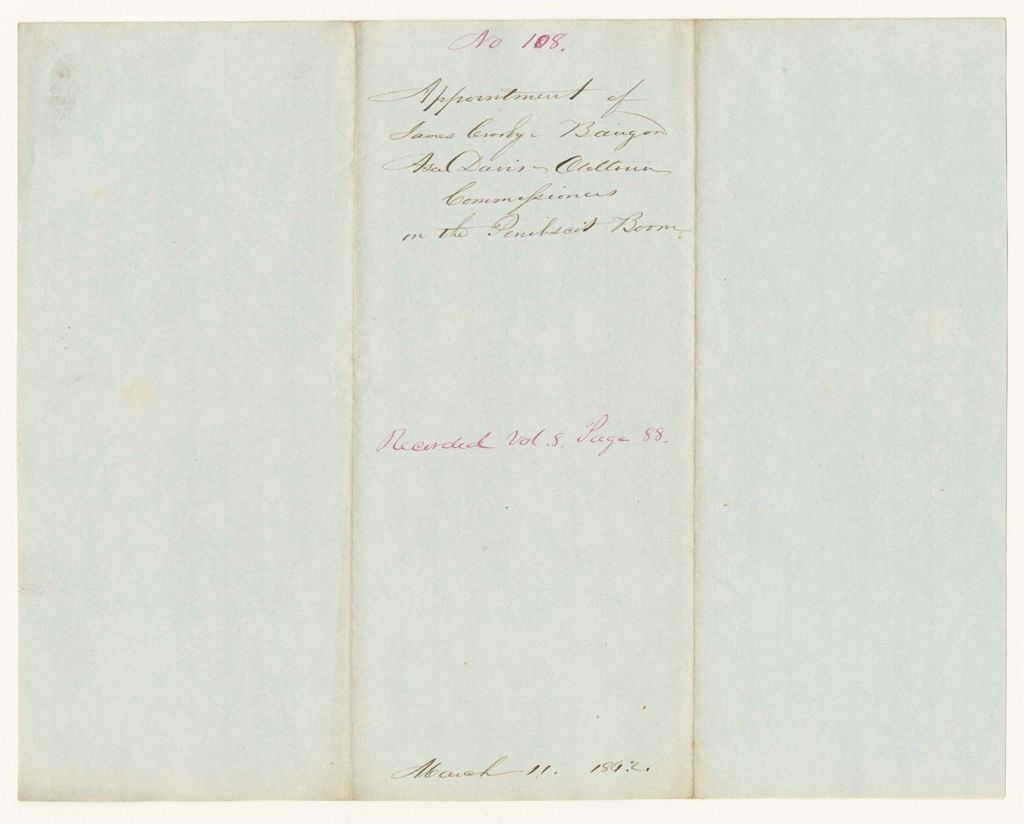 No 108.
Appointment of
James Crosby - Bangor
Asa Davis - Oldtown
Commissioners
on the Penobscot Boom.
Recorded Vol. 8. Page 88.
March 11. 1842.